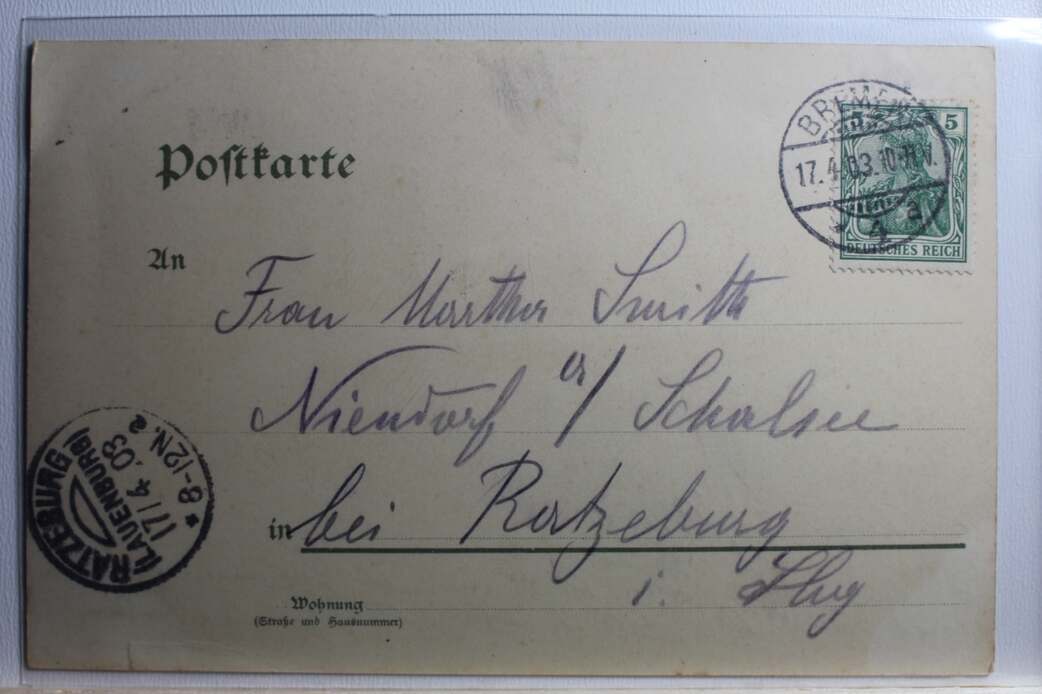 Postkarte
BREMEN
17.4.03.10-11V.
4 a
5 5
DEUTSCHES REICH
An
Frau Martha Smith
Niendorf a/ Schalsee
in bei Ratzeburg
i. Lbg
Wohnung
(Straße und Hausnummer)
RATZEBURG
(LAUENBURG)
17/4.03
* 8-12N. a